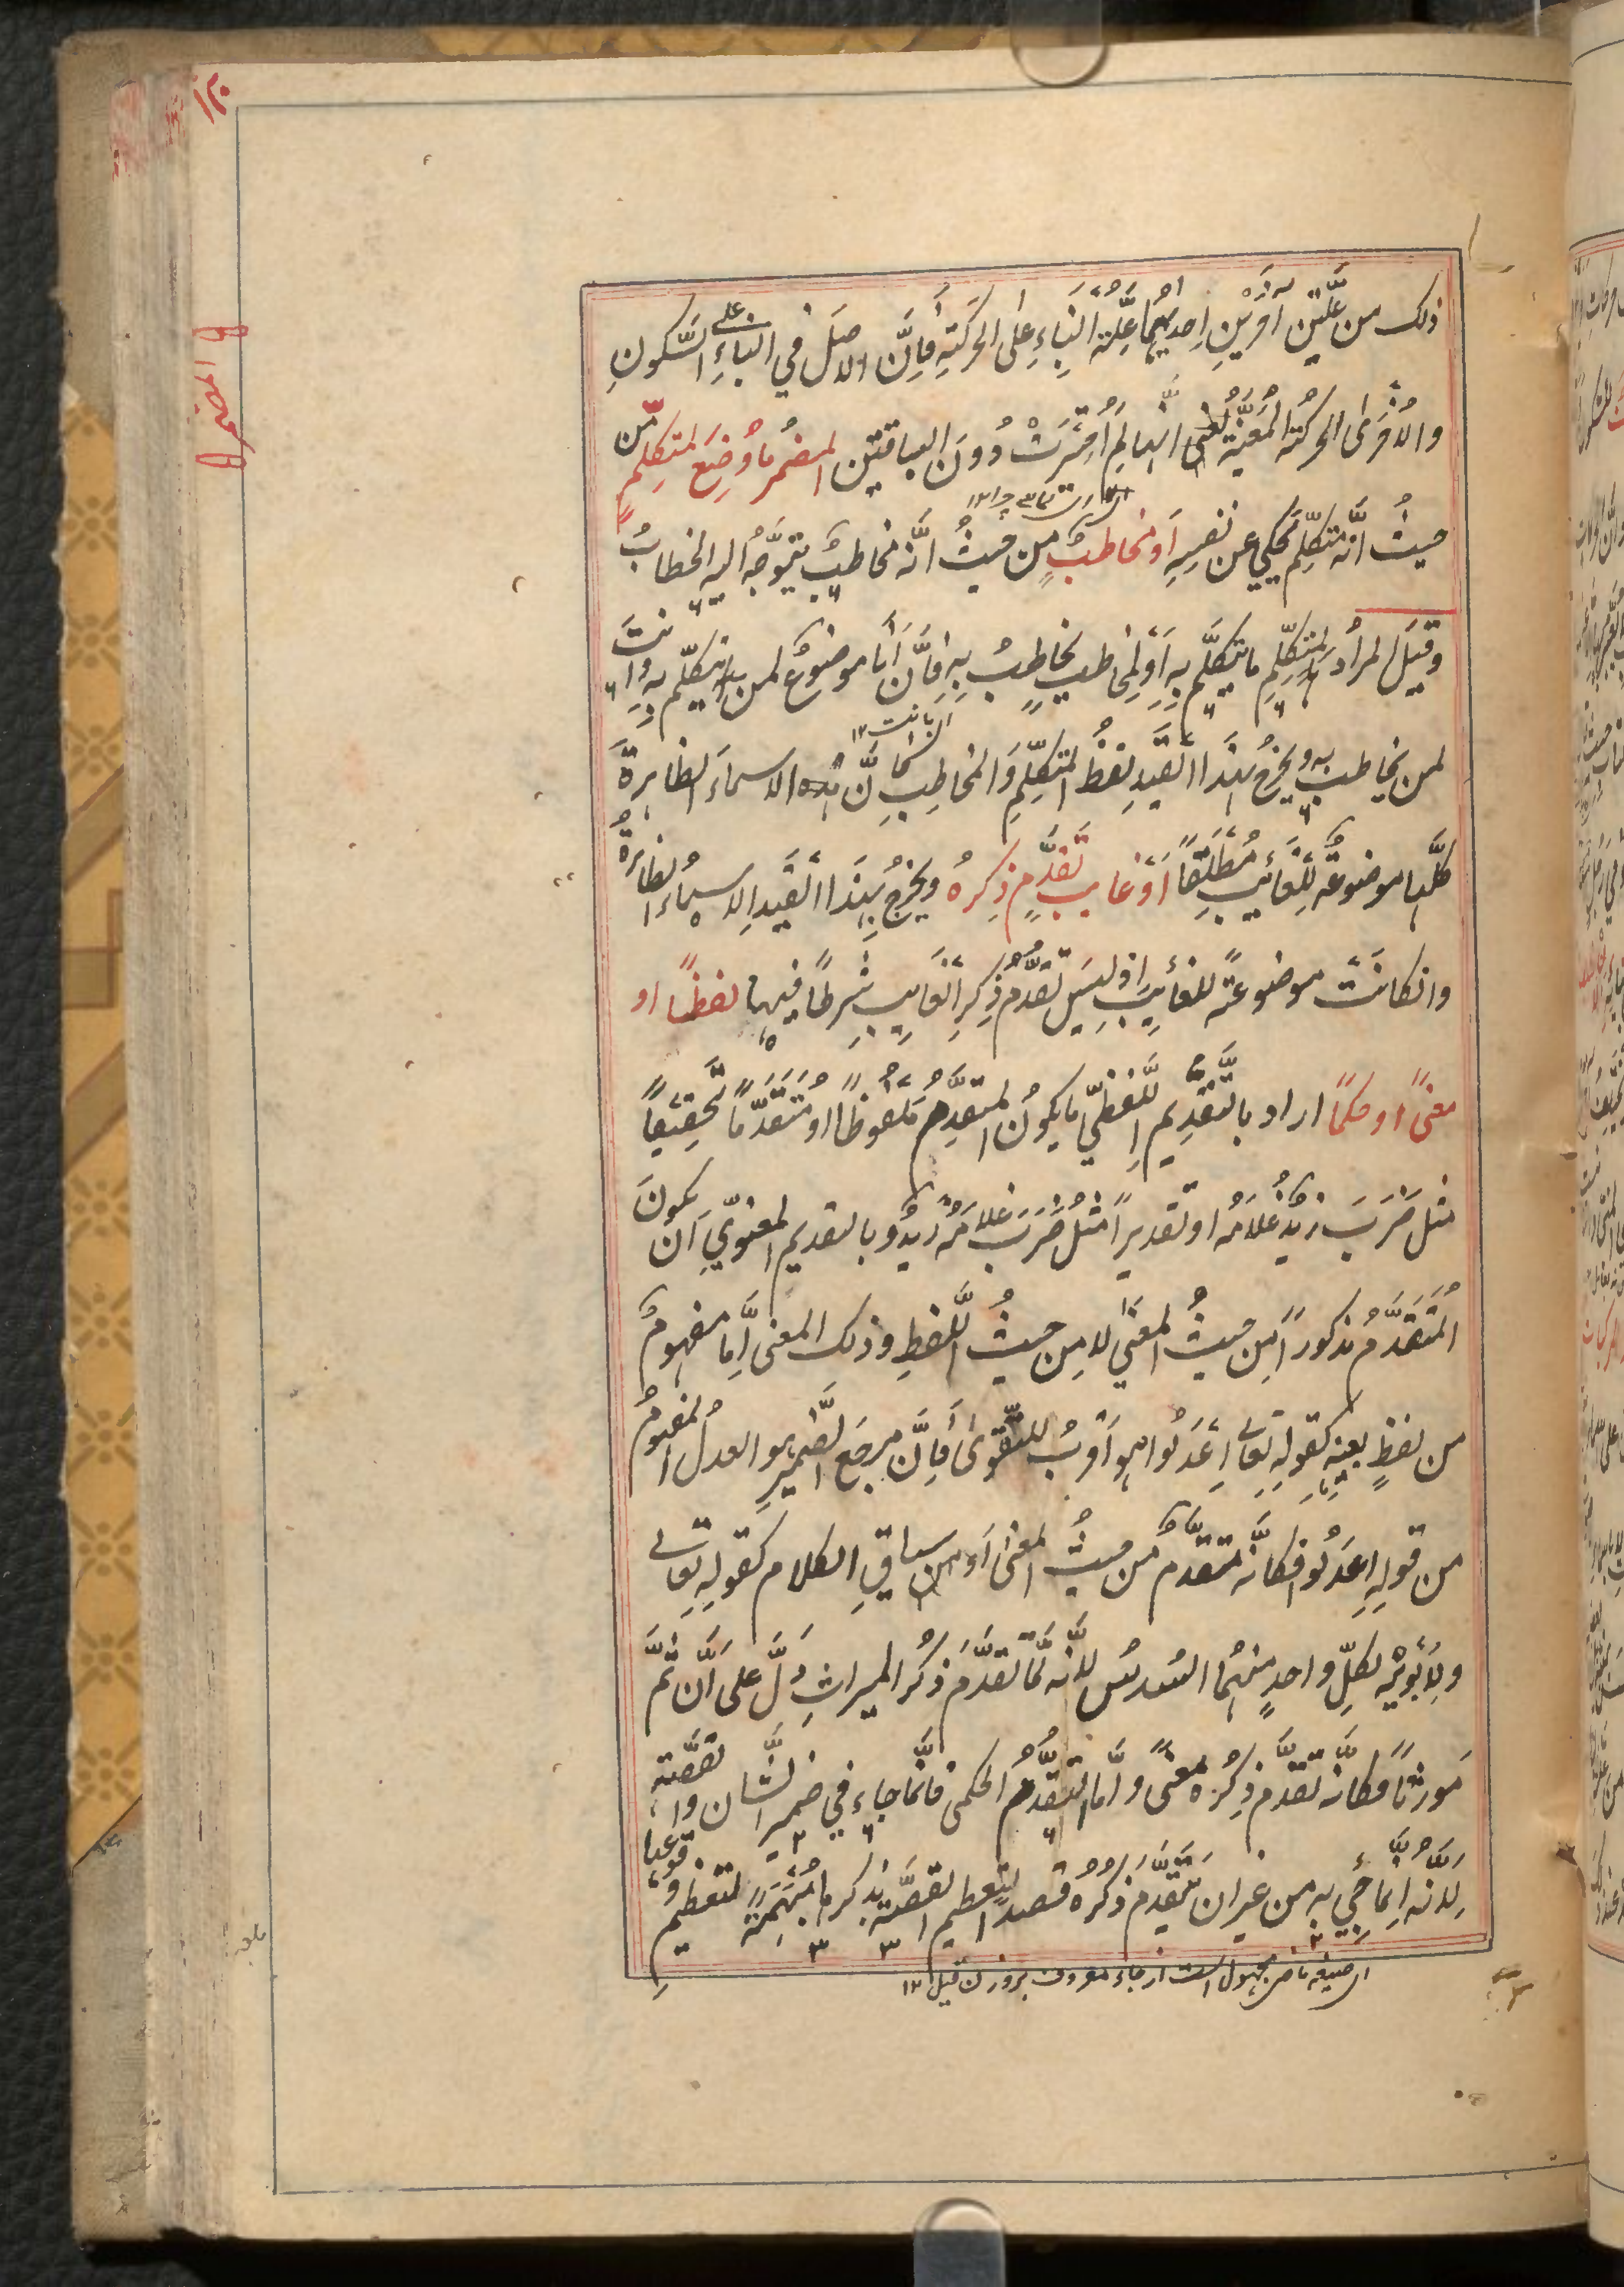 ١٣٠
المضمر
ذلك من علّتين اُخريين اِحديهُما علّة البِناءِ على الحركةِ فاِنَّ الاصلَ في البناءِ على السّكونِ
والاُخرىٰ الحركة المُعيّنة يعني انها لِمَ اُختيرَتْ دُونَ الباقتين المضمرُ ما وُضِعَ لمتكلمٍ من
حيثُ انّه متكلّم يحكي عن نفسِهِ اَو مخاطبٍ من حيثُ انّه مخاطبٌ يتوجّهُ اليه الخطابُ
وقيلَ المرادُ بالمتكلّمِ ما يتكلّم به اَو لمخاطبٍ يخاطِبُ به فاِنَّ اَنا موضوعٌ لمن يتكلّم به وانتَ
لمن يخاطب به ويخرجُ بهذا القيدِ لفظُ المتكلّمِ والمخاطِبِ لانَّ هذه الاسماءَ الظاهرة
كلَّها موضوعةٌ للغائِبِ مُطلقاً اَو غائبٍ تقدَّم ذِكرهُ ويخرجُ بهذا القيدِ الاسماءُ الظاهرةُ
وانكانَتْ موضوعةً للغائِبِ اِذ ليسَ تقدُّم ذِكرِ الغايبِ شرطاً فيها لفظاً او
معنًى او حكماً اراد بالتّقديم اللّفظيّ ما يكونُ المتقدّم ملفوظاً او مُتقدّماً تحقيقاً
مثل ضَرَبَ زيدٌ غلامَه او تقديراً مثلُ ضَرَبَ غلامَهُ زيدٌ وبالتقديم المعنويّ اَن يكونَ
المُتَقَدَّمُ مذكوراً من حيثُ المعنَى لا مِن حيثُ اللّفظِ وذلك المعنى اِمّا مفهومٌ
من لفظٍ بعينِهِ كقوله تعالى اِعْدِلُوا هو اَقربُ للتّقوىٰ فاِنَّ مرجَع الضّميرِ هو العدلُ المفهومُ
من قولِهِ اِعدِلُوا فكانّه متقدّمٌ من حيثُ المعنى اَو من سياقِ الكلام كقولِه تعالى
ولِاَبَوَيْه لكلِّ واحدٍ منهُما السُدسُ لاَنّه لمّا تقدّمَ ذكرُ الميراثِ دلَّ على اَنّ ثَمَّ
مورثاً فكانّه تقدّم ذِكرُهُ معنًى واَمّا التّقدّمُ الحكمي فانّما جاءَ في ضميرِ الشّان والقصّة
لِاَنّه اِنّما جيْءَ به من غيرِ ان يتقدّمَ ذكرُهُ قصداً لتعظيم القصّة بذكرها مُبْهَمَةً لتعظيم وقوعها
اى صيغهٔ ماضى مجهول است از جاء معروف بروزن قيل ١٢